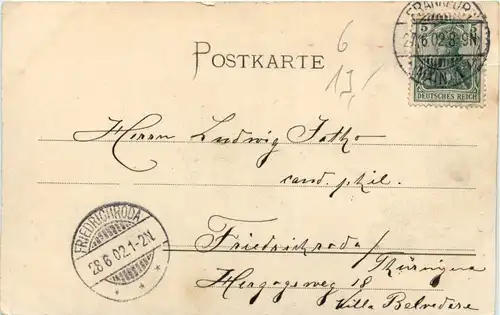 FRANKFURT
27.6.02.8-9N.
(MAIN)
5 5
DEUTSCHES REICH
6
13,-
POSTKARTE
Herrn Ludwig Jatho
cand. phil.
FRIEDRICHRODA
28.6.02.1-2N.
* * *
Friedrichroda/
Thüringen
Herzogsweg 18
Villa Belvedere